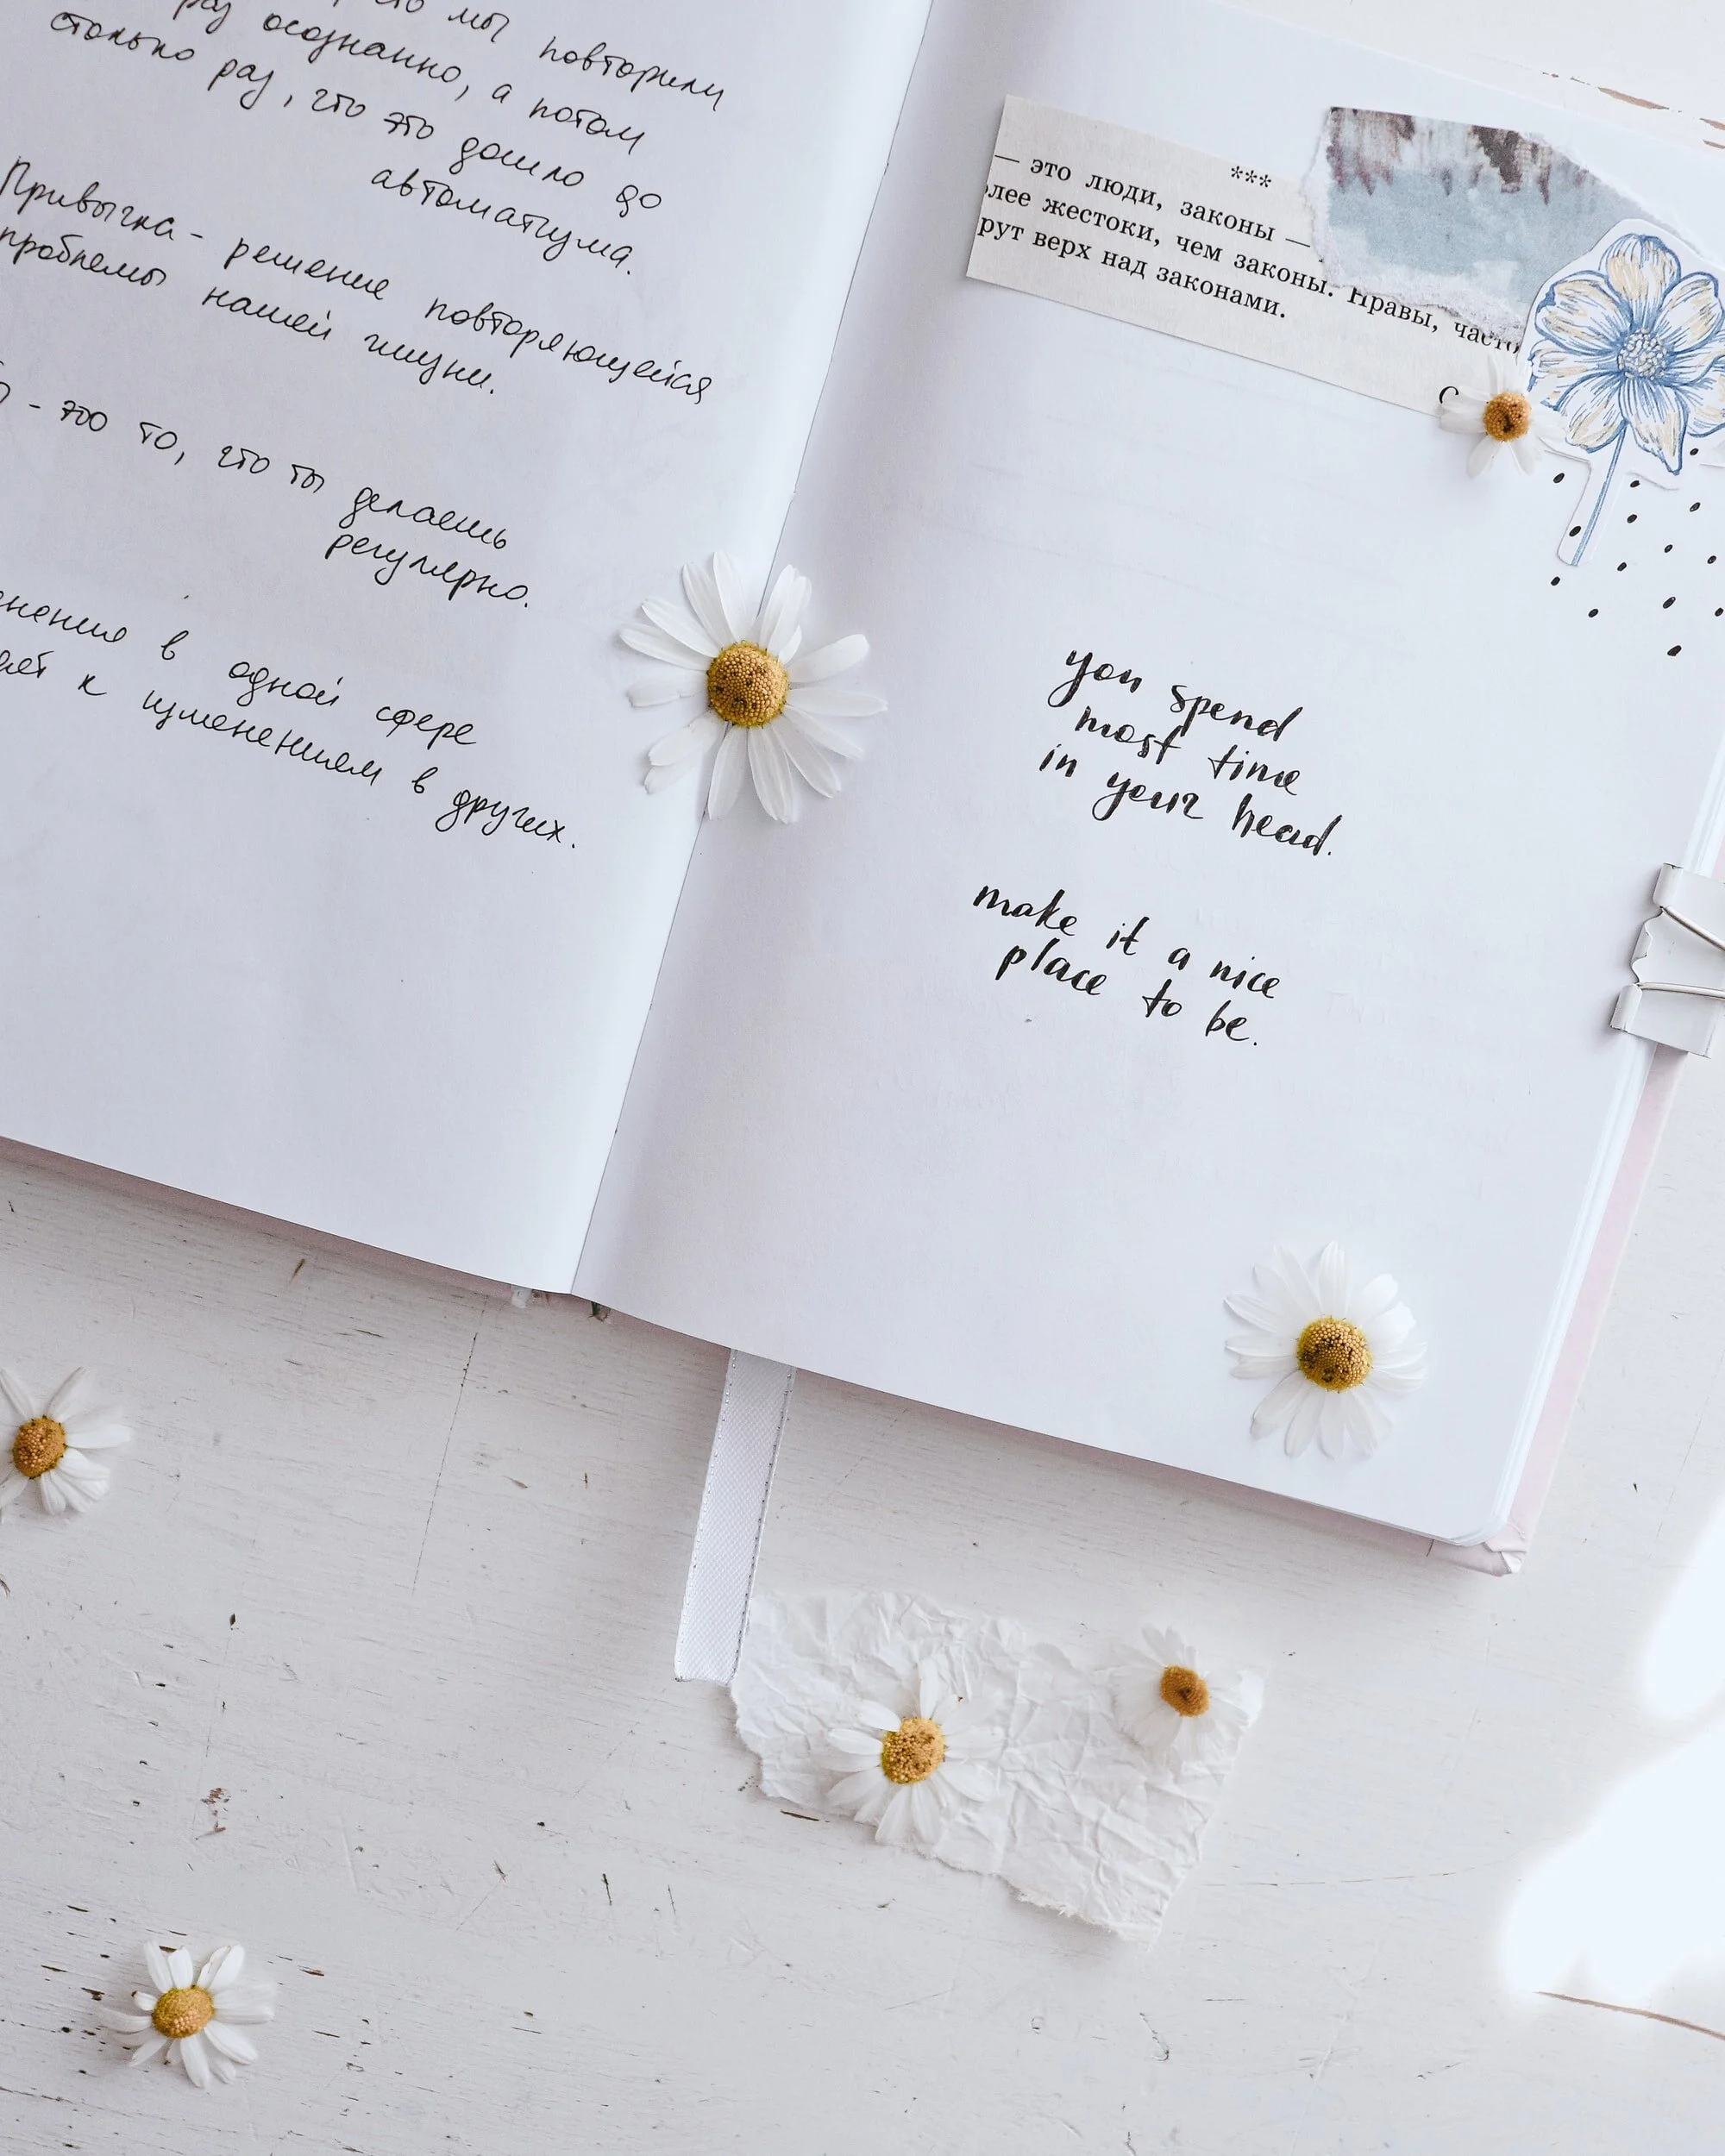 то мы повторили
раз осознанно, а потом
столько раз, что это дошло до
автоматизма.
Привычка - решение повторяющейся
проблемы нашей жизни.
- это то, что ты делаешь
регулярно.
в одной сфере
к изменениям в других.
***
— это люди, законы —
жестоки, чем законы. Нравы, часто
верх над законами.
you spend
most time
in your head.
make it a nice
place to be.